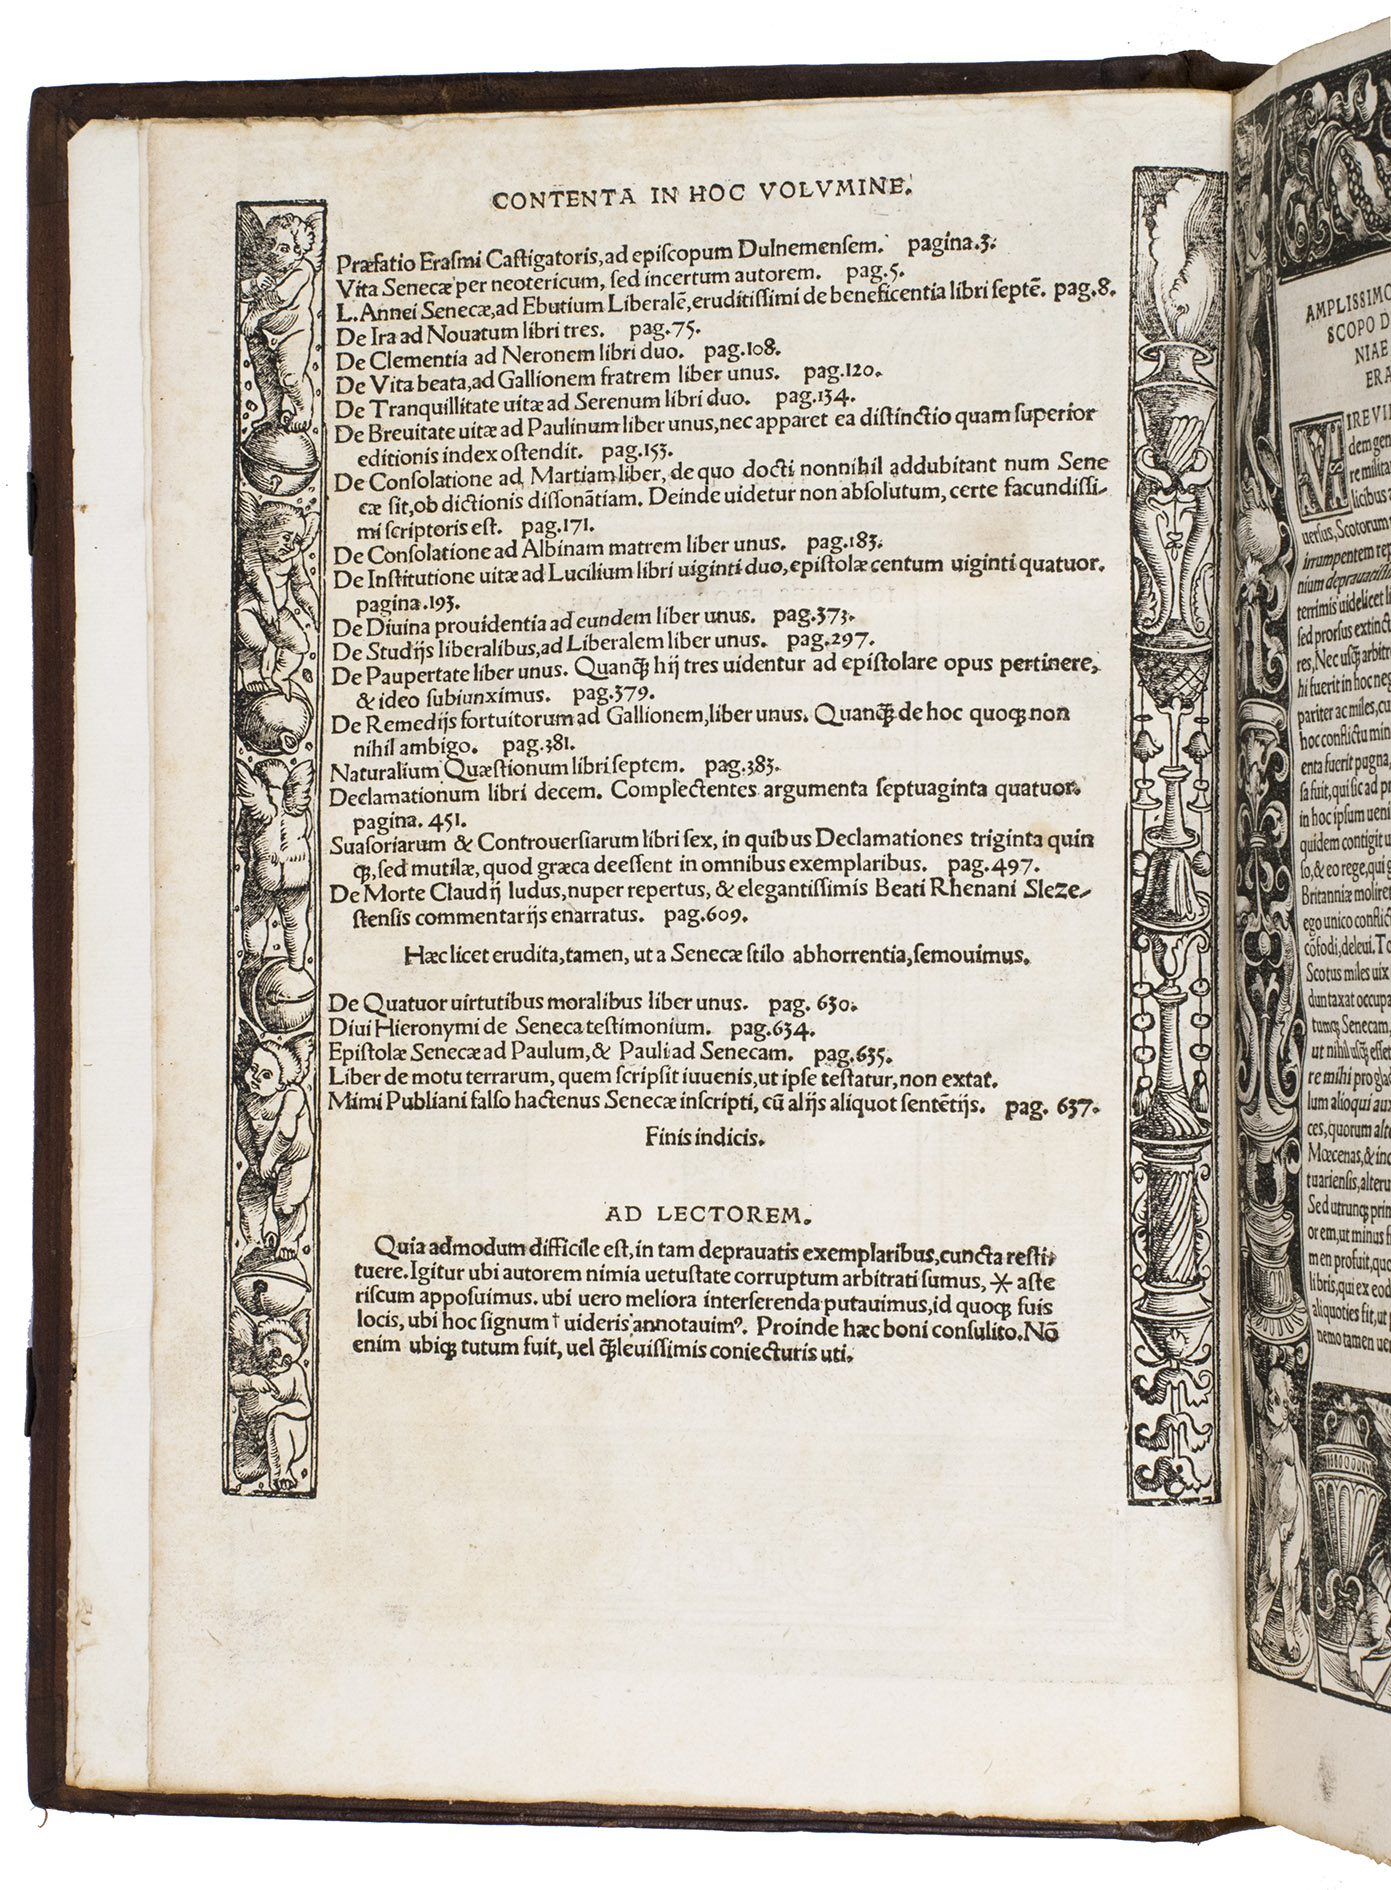 CONTENTA IN HOC VOLVMINE.
Præfatio Erasmi Castigatoris, ad episcopum Dulnemensem. pagina.3.
Vita Senecæ per neotericum, sed incertum autorem. pag.5.
L. Annei Senecæ, ad Ebutium Liberalē, eruditissimi de beneficentia libri septē. pag.8.
De Ira ad Nouatum libri tres. pag.75.
De Clementia ad Neronem libri duo. pag.108.
De Vita beata, ad Gallionem fratrem liber unus. pag.120.
De Tranquillitate uitæ ad Serenum libri duo. pag.134.
De Breuitate uitæ ad Paulinum liber unus, nec apparet ea distinctio quam superior
editionis index ostendit. pag.153.
De Consolatione ad Martiam liber, de quo docti nonnihil addubitant num Sene
cæ sit, ob dictionis dissonātiam. Deinde uidetur non absolutum, certe facundissi-
mi scriptoris est. pag.171.
De Consolatione ad Albinam matrem liber unus. pag.183.
De Institutione uitæ ad Lucilium libri uiginti duo, epistolæ centum uiginti quatuor.
pagina.193.
De Diuina prouidentia ad eundem liber unus. pag.373.
De Studijs liberalibus, ad Liberalem liber unus. pag.297.
De Paupertate liber unus. Quanq̃ hij tres uidentur ad epistolare opus pertinere,
& ideo subiunximus. pag.379.
De Remedijs fortuitorum ad Gallionem, liber unus. Quanq̃ de hoc quoq; non
nihil ambigo. pag.381.
Naturalium Quæstionum libri septem. pag.383.
Declamationum libri decem. Complectentes argumenta septuaginta quatuor.
pagina. 451.
Suasoriarum & Controuersiarum libri sex, in quibus Declamationes triginta quin
q;, sed mutilæ, quod græca deessent in omnibus exemplaribus. pag.497.
De Morte Claudij ludus, nuper repertus, & elegantissimis Beati Rhenani Sleze-
stensis commentarijs enarratus. pag.609.
Hæc licet erudita, tamen, ut a Senecæ stilo abhorrentia, semouimus.
De Quatuor uirtutibus moralibus liber unus. pag. 630.
Diui Hieronymi de Seneca testimonium. pag.634.
Epistolæ Senecæ ad Paulum, & Pauli ad Senecam. pag.635.
Liber de motu terrarum, quem scripsit iuuenis, ut ipse testatur, non extat.
Mimi Publiani falso hactenus Senecæ inscripti, cū alijs aliquot sentētijs. pag. 637.
Finis indicis.
AD LECTOREM.
Quia admodum difficile est, in tam deprauatis exemplaribus, cuncta resti-
tuere. Igitur ubi autorem nimia uetustate corruptum arbitrati sumus, * aste
riscum apposuimus. ubi uero meliora interserenda putauimus, id quoq; suis
locis, ubi hoc signum † uideris annotauimꝰ. Proinde hæc boni consulito. Nō
enim ubiq; tutum fuit, uel q̃ leuissimis coniecturis uti.
AMPLISSIMO
SCOPO D
NIAE
ERA
IREVI
dem gen
re milita
licibus
uersus, Scotorum
irrumpentem rep
nium deprauatissi
terrimis uidelicet
sed prorsus extinct
res, Nec usq̃ arbitr
hi fuerit in hoc neg
pariter ac miles, cu
hoc conflictu min
enta fuerit pugna,
sa fuit, qui sic ad p
in hoc ipsum ueni
quidem contigit u
so, & eo rege, qui g
Britanniæ moliret
ego unico conflic
cōfodi, deleui. To
Scotus miles uix
duntaxat occupa
tumq; Senecam,
ut nihil usq̃ esset
re mihi pro glad
lum alioqui aux
ces, quorum alte
Mœcenas, & inc
tuariensis, alteru
Sed utrunq; prin
orem, ut minus f
men profuit, quo
libris, qui ex eod
aliquoties fit, ut
nemo tamen uer